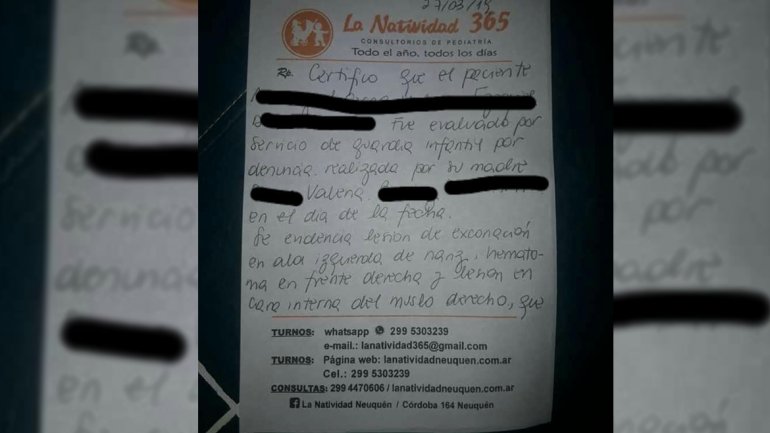 27/03/19
La Natividad 365
CONSULTORIOS DE PEDIATRÍA
Todo el año, todos los días
Rp. Certifico que el paciente
Fue evaluado por
servicio de guardia infantil por
denuncia realizada por su madre
Valeria
en el dia de la fecha.
Se evidencia lesion de excoriación
en ala izquierda de nariz, hemato-
ma en frente derecha y lesion en
cara interna del muslo derecho, que
TURNOS: whatsapp 299 5303239
e-mail.: lanatividad365@gmail.com
TURNOS: Página web: lanatividadneuquen.com.ar
Cel.: 299 5303239
CONSULTAS: 299 4470606 / lanatividadneuquen.com.ar
La Natividad Neuquén / Córdoba 164 Neuquén